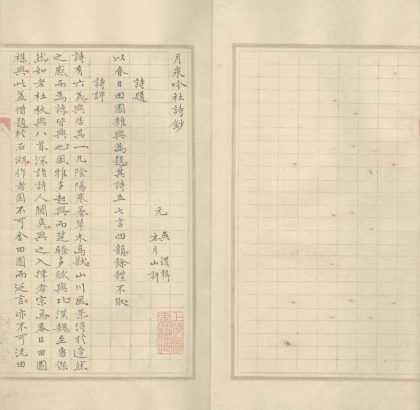 月泉吟社詩鈔
元 吳渭輯
方月山評
詩題
以春日田園雜興為題其詩五七言四韻餘體不取
詩評
詩有六義興居其一凡陰陽寒暑草木鳥獸山川風景得於適然
之感而為詩皆興也風雅多起興而楚騷多賦與比漢魏至唐傑
然如老杜秋興八首深詣詩人閫奧興之入律者宗焉春日田園
雜興此蓋借題於石湖作者固不可舍田園而泛言亦不可泥田